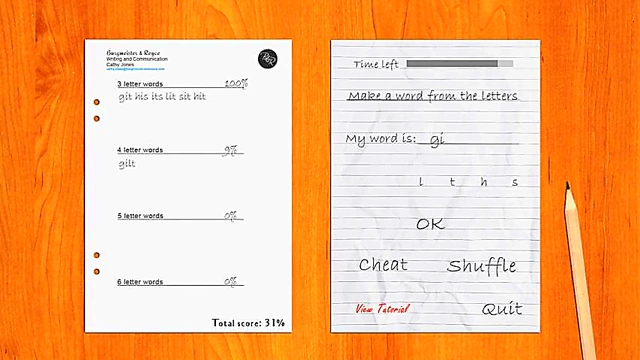 Burgmeister & Royce
Writing and Communication
Cathy Jones
3 letter words 100%
git his its lit sit hit
4 letter words 9%
gilt
5 letter words 0%
6 letter words 0%
Total score: 31%
Time left
Make a word from the letters
My word is: gi
l t h s
OK
Cheat Shuffle
View Tutorial Quit